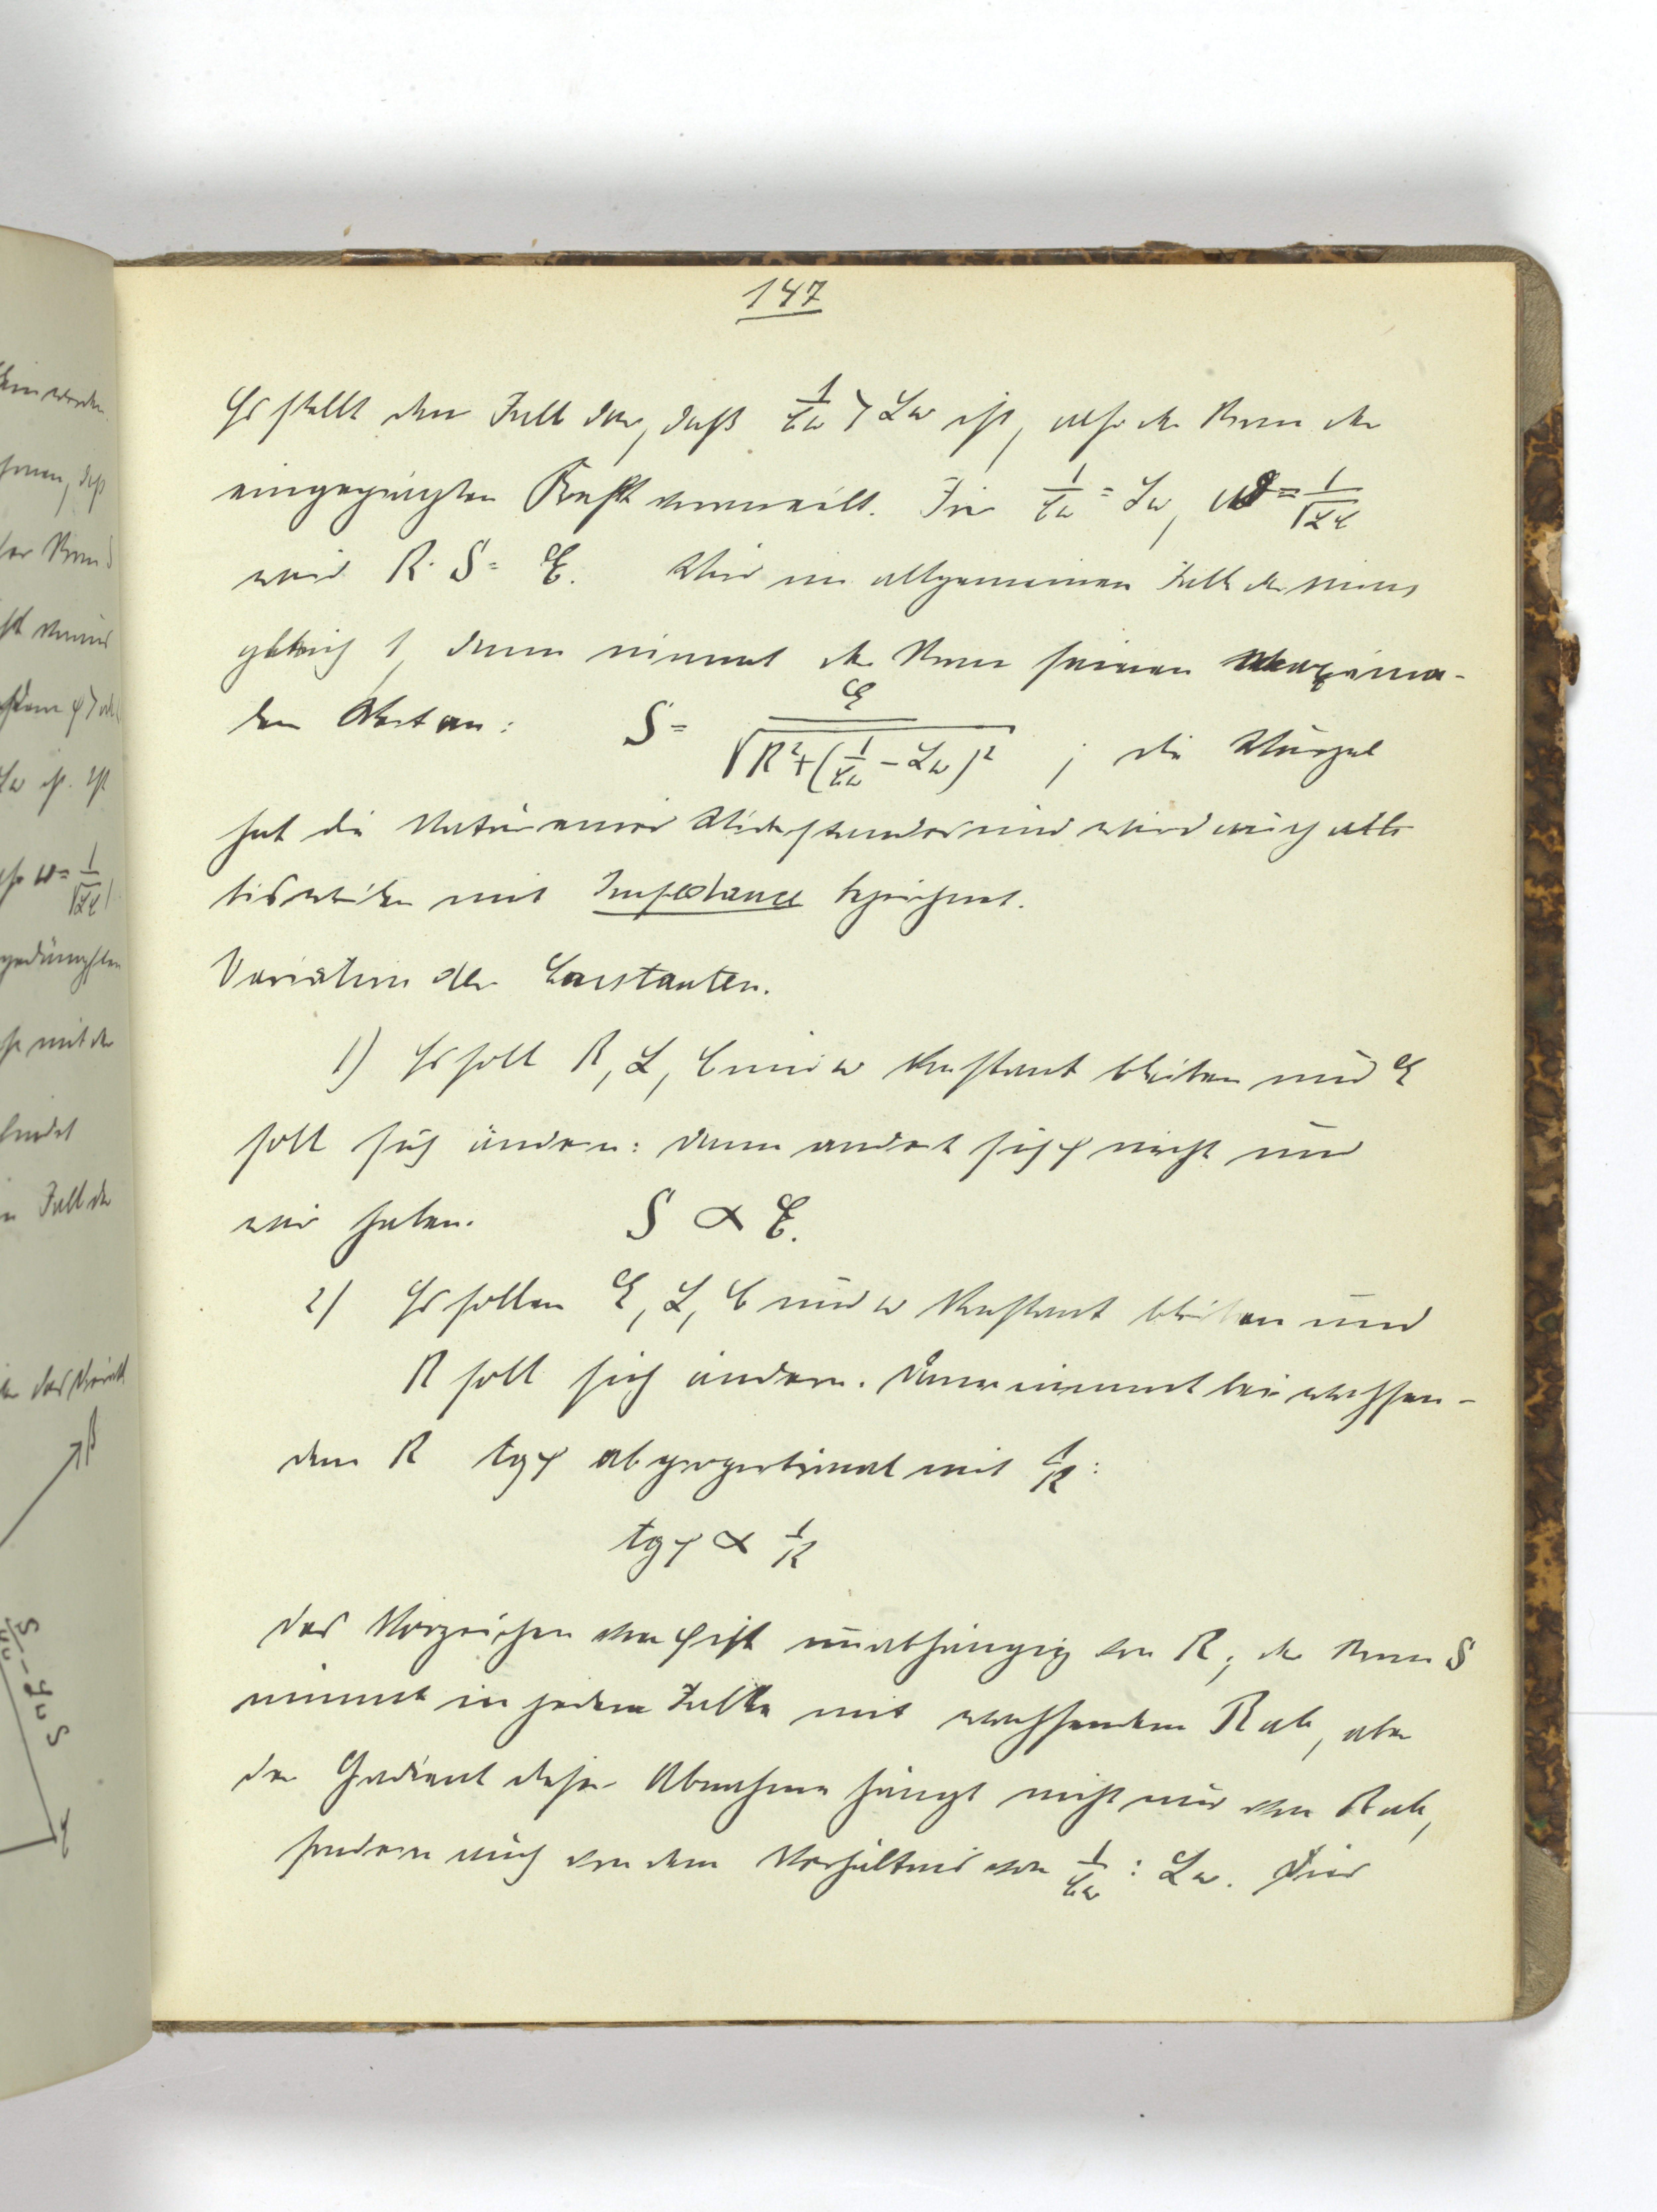 147
Es stellt den Fall dar, daß 1/Cω > Lω ist, also der Strom der
eingeprägten Kraft voraneilt. Für 1/Cω = Lω, ω = 1/√LC
wird R · S = E. Wird im allgemeinen Falle der sinus
gleich 1, dann nimmt der Strom seinen maxima-
len Wert an: S = E/√(R² + (1/Cω − Lω)²) ; die Wurzel
hat die Natur eines Widerstandes und wird auch
bisweilen mit Impedance bezeichnet.
Variation der Constanten.
1) Es soll R, L, C und ω konstant bleiben und E
soll sich ändern: dann andert sich φ nicht und
wir haben. S ∝ E.
2) Es sollen E, L, C und ω konstant bleiben und
R soll sich ändern. Dann nimmt bei wachsen-
dem R tg φ ab proportional mit 1/R:
tg φ ∝ 1/R
Das Vorzeichen von φ ist unabhängig von R; der Strom S
nimmt in jedem Falle mit wachsendem R ab, aber
der Gradient dieser Abnahme hängt nicht nur von R ab,
sondern auch von dem Verhältnis von 1/Cω : Lω. Für
ω = 1/√LC
mit der
Fall der
S/Cω − LωS